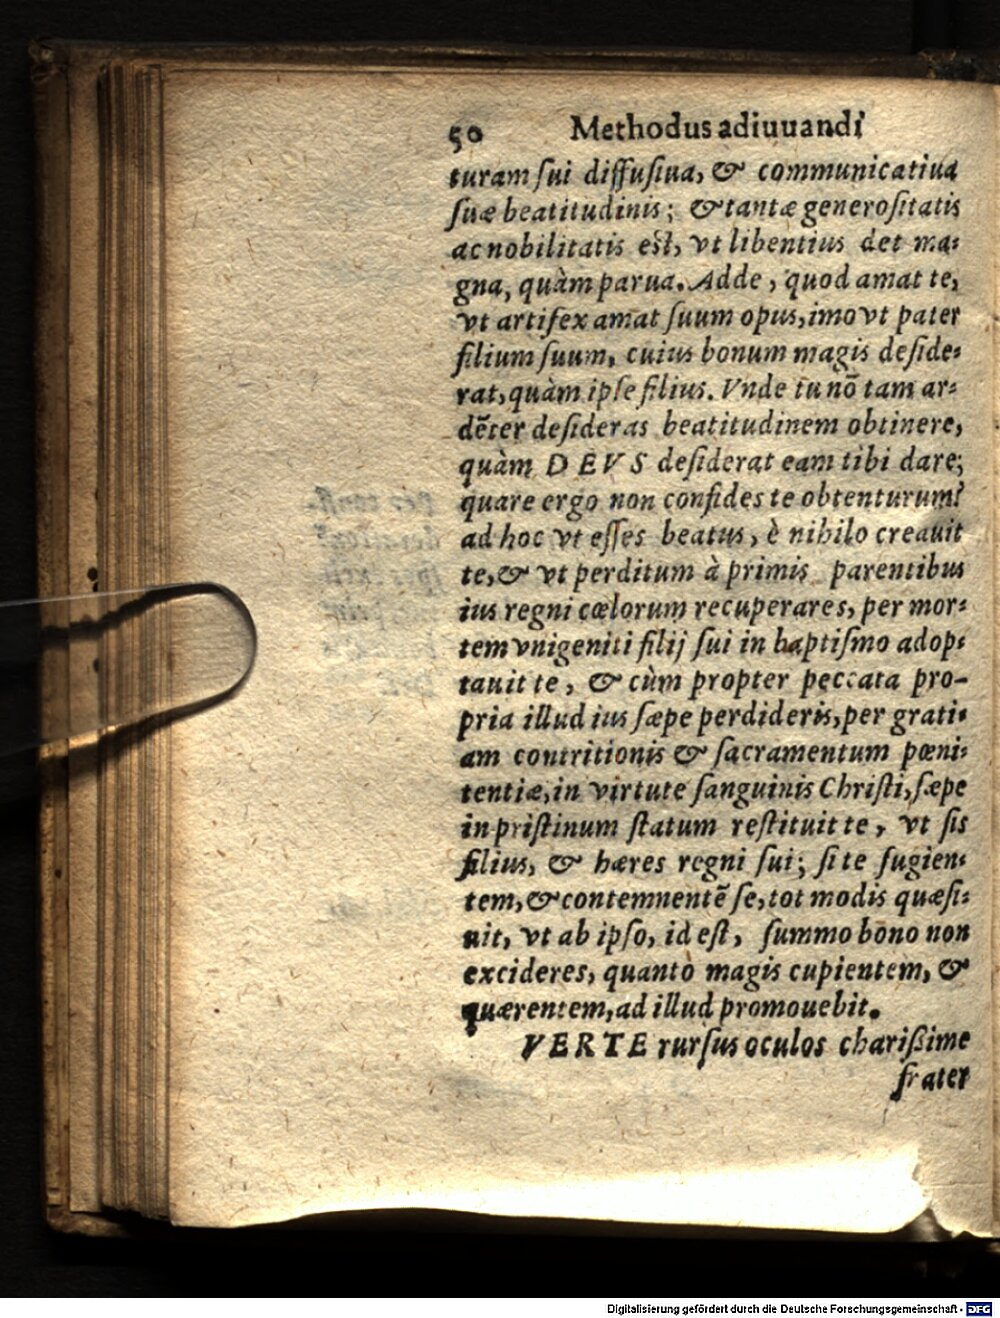 50 Methodus adiuuandi
turam ſui diffuſiua, & communicatiua
ſuæ beatitudinis; & tantæ generoſitatis
ac nobilitatis eſt, vt libentius det ma-
gna, quàm parua. Adde, quod amat te,
vt artifex amat ſuum opus, imo vt pater
filium ſuum, cuius bonum magis deſide-
rat, quàm ipſe filius. Vnde tu nō tam ar-
dēter deſideras beatitudinem obtinere,
quàm DEVS deſiderat eam tibi dare;
quare ergo non confides te obtenturum?
ad hoc vt eſſes beatus, è nihilo creauit
te, & vt perditum à primis parentibus
ius regni cœlorum recuperares, per mor-
tem vnigeniti filij ſui in baptiſmo adop-
tauit te, & cùm propter peccata pro-
pria illud ius ſæpe perdideris, per grati-
am contritionis & ſacramentum pœni-
tentiæ, in virtute ſanguinis Chriſti, ſæpe
in priſtinum ſtatum reſtituit te, vt ſis
filius, & hæres regni ſui; ſi te fugien-
tem, & contemnentē ſe, tot modis quæſi-
uit, vt ab ipſo, id eſt, ſummo bono non
excideres, quantò magis cupientem, &
quærentem, ad illud promouebit.
VERTE rurſus oculos charißime
frater
Digitalisierung gefördert durch die Deutsche Forschungsgemeinschaft - DFG